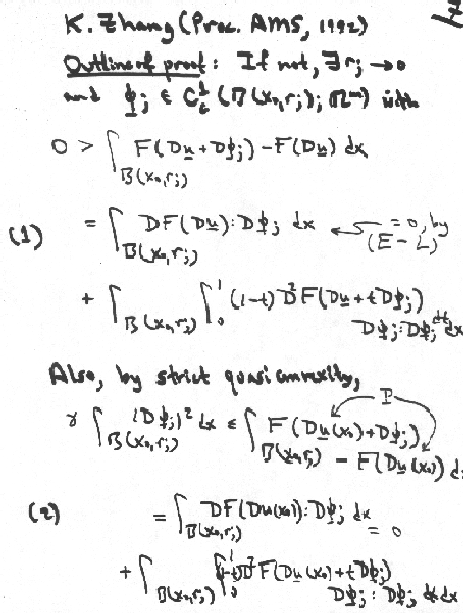 K. Zhang (Proc. AMS, 1992)
Outline of proof: If not, ∃ r_j → 0
and ϕ_j ∈ C_c^1(B(x_0, r_j); ℝ^m) with
0 > ∫_{B(x_0, r_j)} F(Du + Dϕ_j) - F(Du) dx
(1) = ∫_{B(x_0, r_j)} DF(Du) : Dϕ_j dx ← = 0, by (E-L)
+ ∫_{B(x_0, r_j)} ∫_0^1 (1-t) D^2 F(Du + tDϕ_j) Dϕ_j : Dϕ_j dt dx
Also, by strict quasiconvexity,
γ ∫_{B(x_0, r_j)} |Dϕ_j|^2 dx ≤ ∫_{B(x_0, r_j)} F(Du(x_0) + Dϕ_j) - F(Du(x_0)) d
(2) = ∫_{B(x_0, r_j)} DF(Du(x_0)) : Dϕ_j dx = 0
+ ∫_{B(x_0, r_j)} ∫_0^1 (1-t) D^2 F(Du(x_0) + tDϕ_j) Dϕ_j : Dϕ_j dt dx